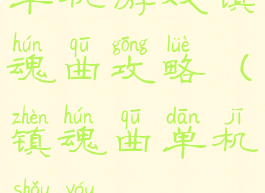 单机游戏镇
hún qū gōng lüè
魂曲攻略（
zhèn hún qū dān jī
镇魂曲单机
shǒu yóu